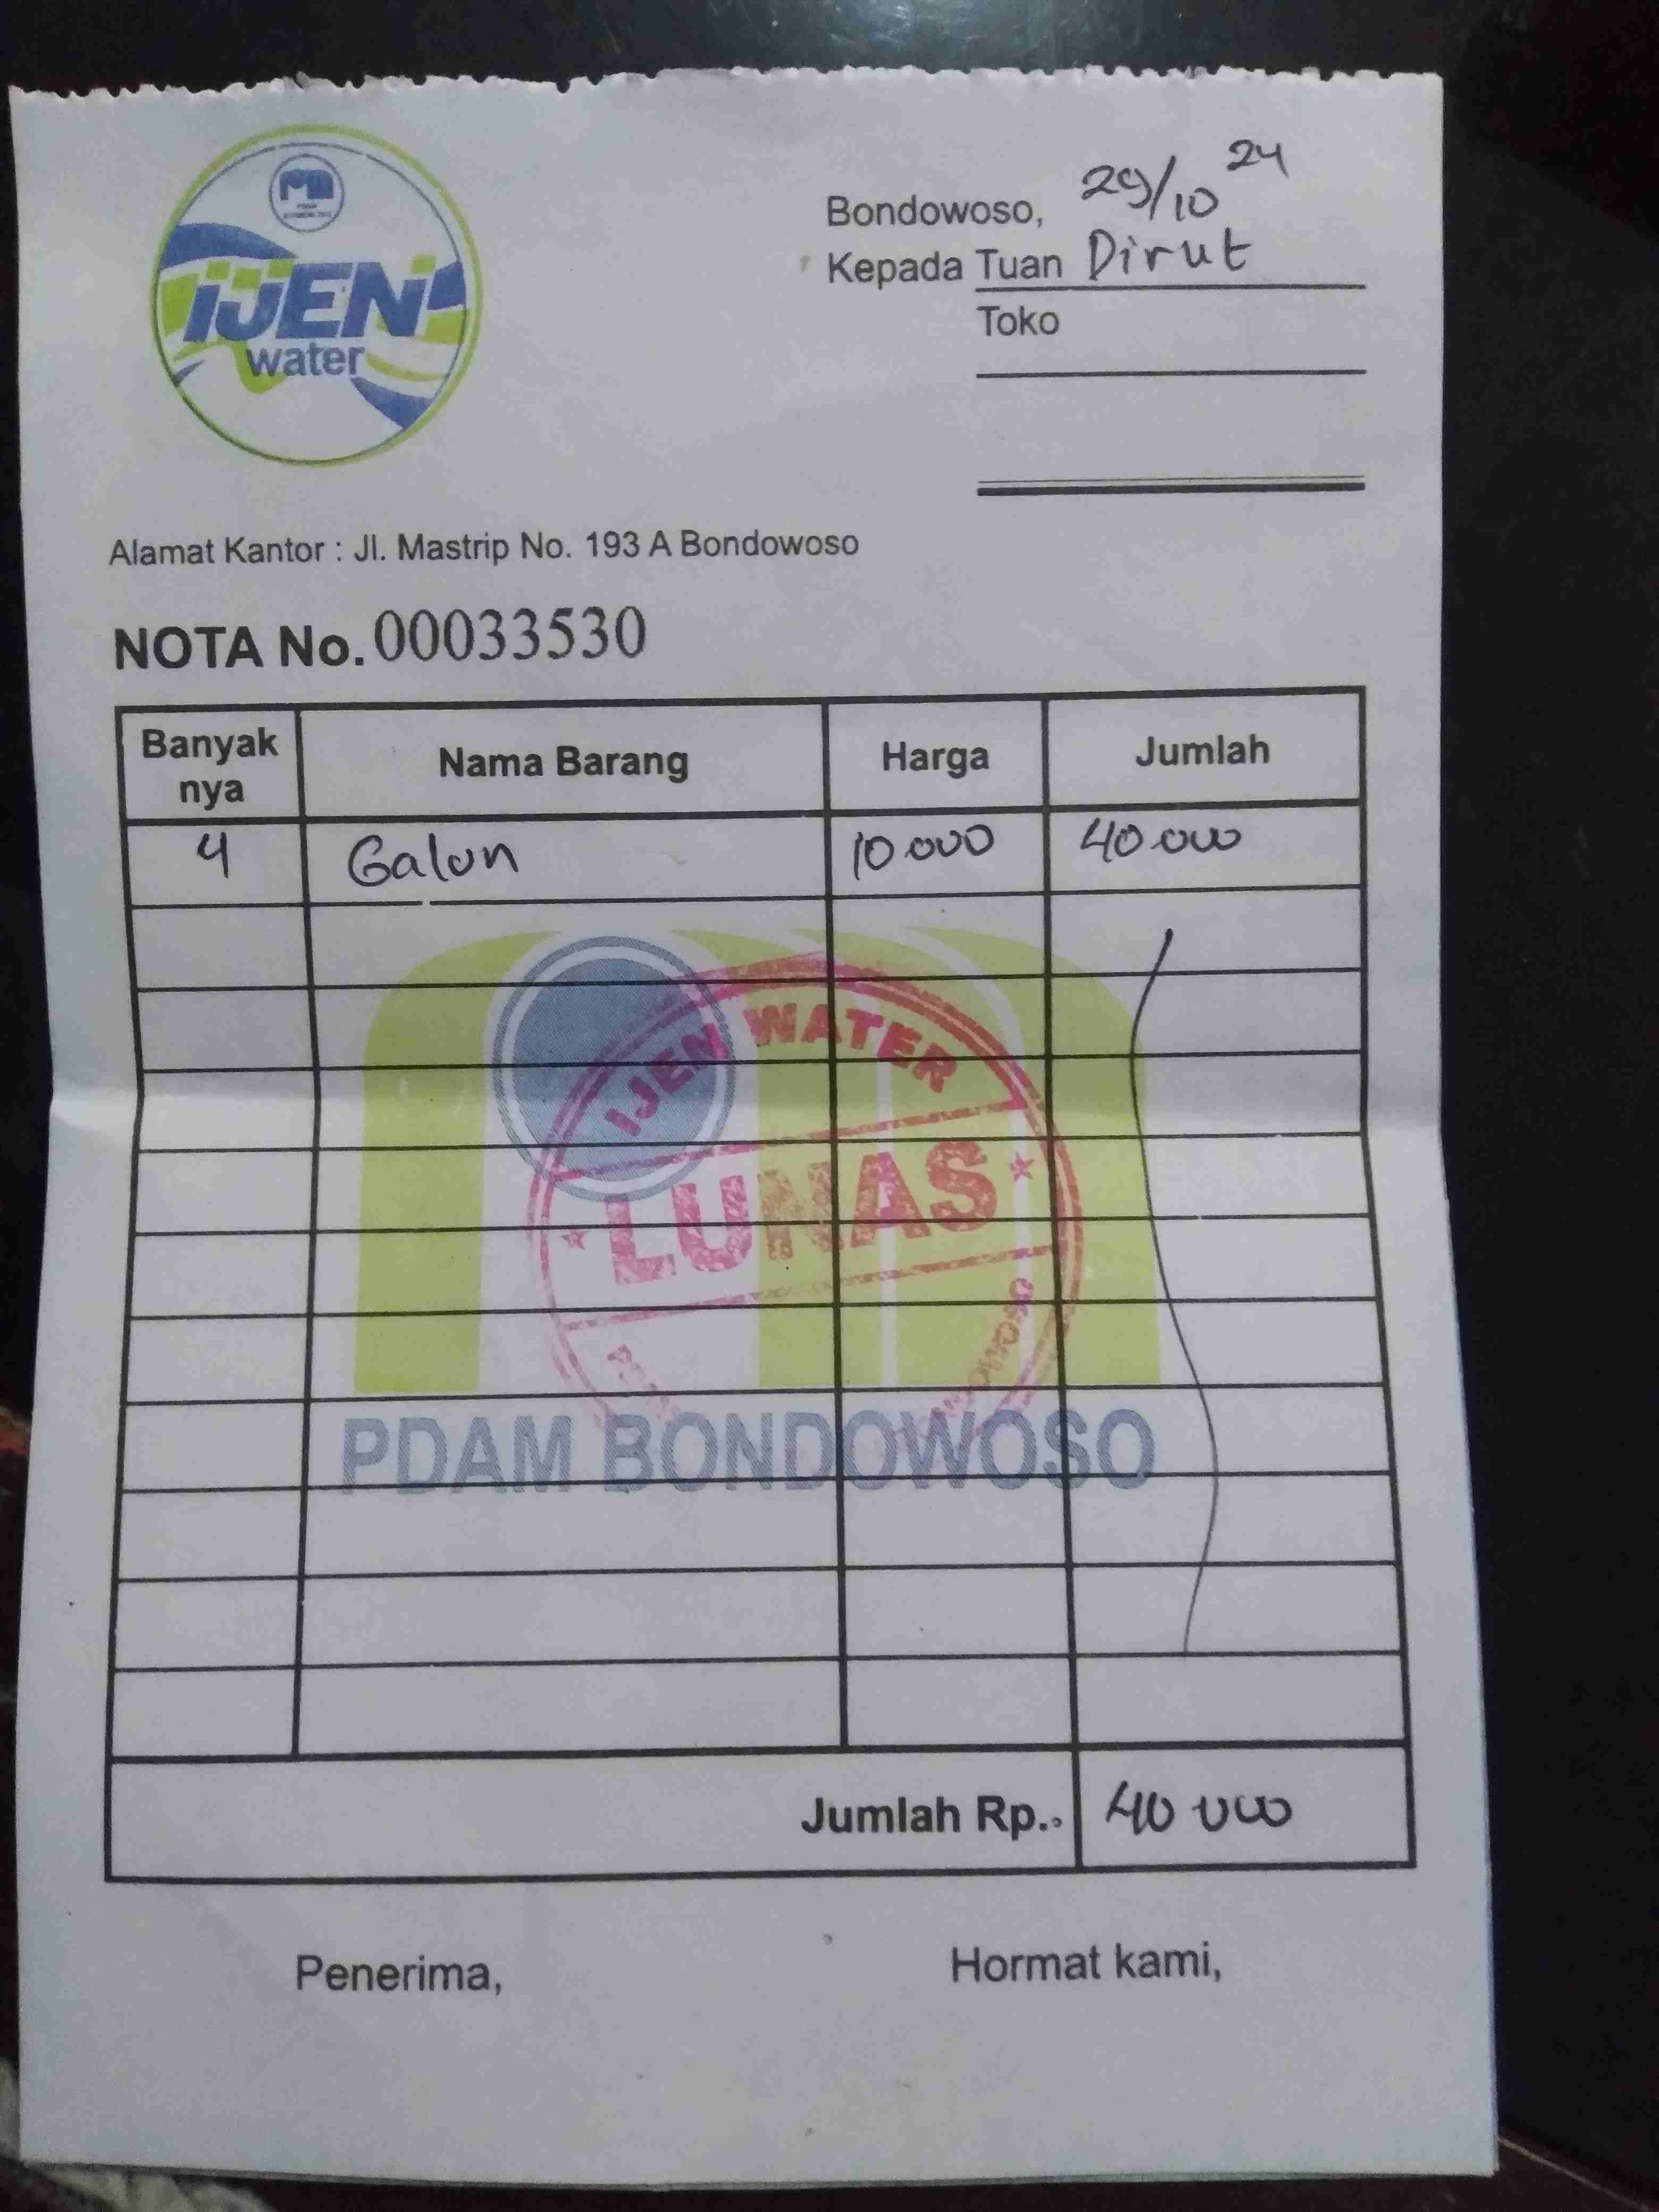 IJEN
water
Bondowoso, 29/10 24
Kepada Tuan Dirut
Toko
Alamat Kantor : Jl. Mastrip No. 193 A Bondowoso
NOTA No. 00033530
Banyak nya Nama Barang Harga Jumlah
4 Galon 10 000 40 000
IJEN WATER
LUNAS
BONDOWOSO
PDAM BONDOWOSO
Jumlah Rp. 40 000
Penerima, Hormat kami,